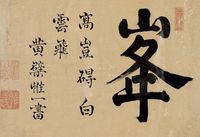 峯
高豈碍白
雲飛
黄檗惟一書